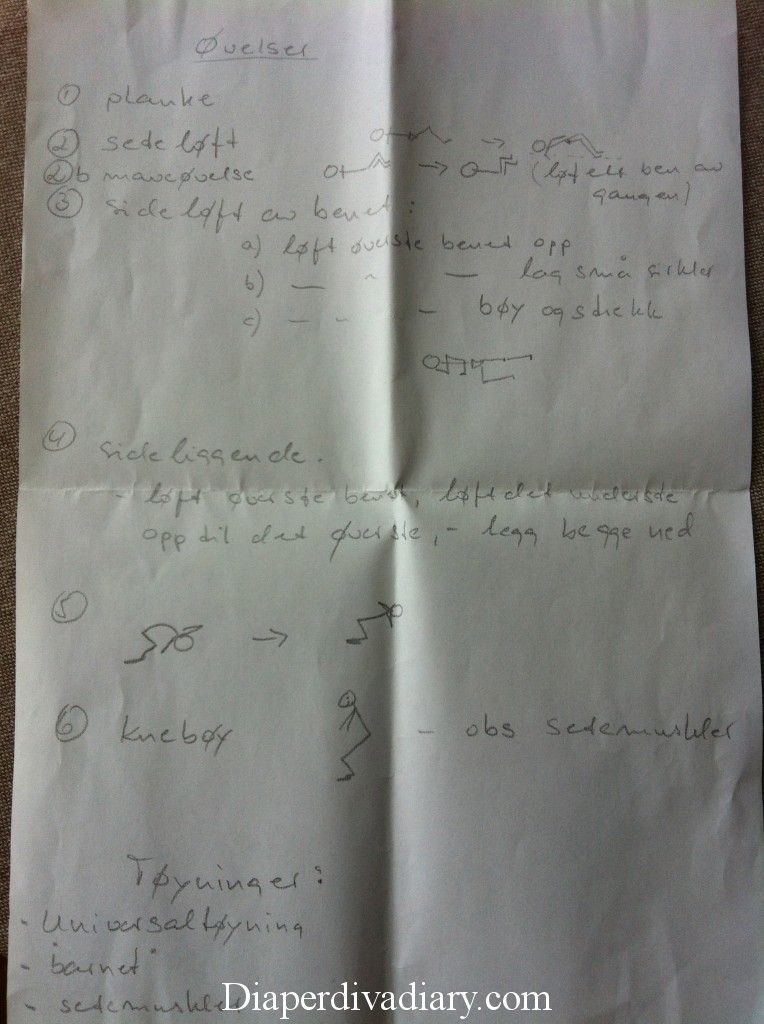 Øvelser
① planke
② seteløft
②b maveøvelse (løft ett ben av gangen)
③ Sideløft av benet:
a) løft øverste benet opp
b) — " — lag små sirkler
c) — " " — bøy og strekk
④ Sideliggende.
- løft øverste benet, løft det underste
opp til det øverste, - legg begge ned
⑤
⑥ Knebøy - obs setemuskler
Tøyninger:
- Universaltøyning
- "barnet"
- setemuskler
Diaperdivadiary.com